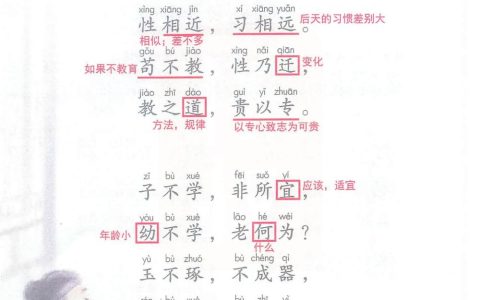 xìng xiāng jìn xí xiāng yuǎn
性相近，习相远。
相似；差不多
后天的习惯差别大
gǒu bú jiào xìng nǎi qiān
如果不教育
苟不教，性乃迁，
变化
jiào zhī dào guì yǐ zhuān
教之道，贵以专。
方法，规律
以专心致志为可贵
zǐ bù xué fēi suǒ yí
子不学，非所宜，
应该，适宜
yòu bù xué lǎo hé wéi
年龄小
幼不学，老何为？
什么
yù bù zhuó bù chéng qì
玉不琢，不成器，